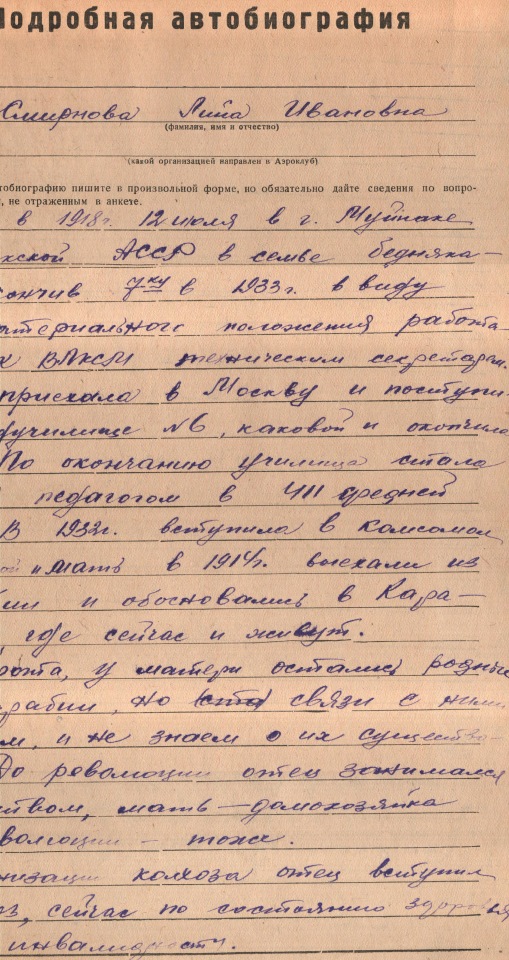 Подробная автобиография
Смирнова Лина Ивановна
(фамилия, имя и отчество)
(какой организацией направлен в Аэроклуб)
тобиографию пишите в произвольной форме, но обязательно дайте сведения по вопро-
, не отраженным в анкете.
в 1918г. 12 июля в г. Муйнаке
кской АССР в семье бедняка—
кончив 7-ку в 1933г. в виду
атериального положения работа
к ВЛКСМ техническим секретарем.
приехала в Москву и поступи-
дучилище №6, каковой и окончила
По окончанию училища стала
педагогом в 411 средней
В 1932г. вступила в комсомол
ой и мать в 1914г. выехали из
бии и обосновались в Кара—
, где сейчас и живут.
, у матери остались родные
рабии, но связи с ними
м, и не знаем о их существо-
До революции отец занимался
ством, мать — домохозяйка
волюции — тоже.
низации колхоза отец вступил
оз, сейчас по состоянию здоровья
инвалидности.